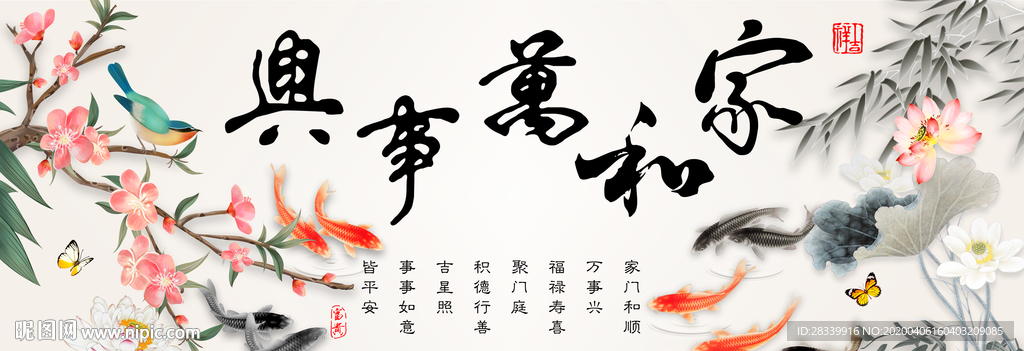 家和萬事興
家门和顺
万事兴
福禄寿喜
聚门庭
积德行善
吉星照
事事如意
皆平安
昵图网 www.nipic.com
ID:28339916 NO:20200406160403209085